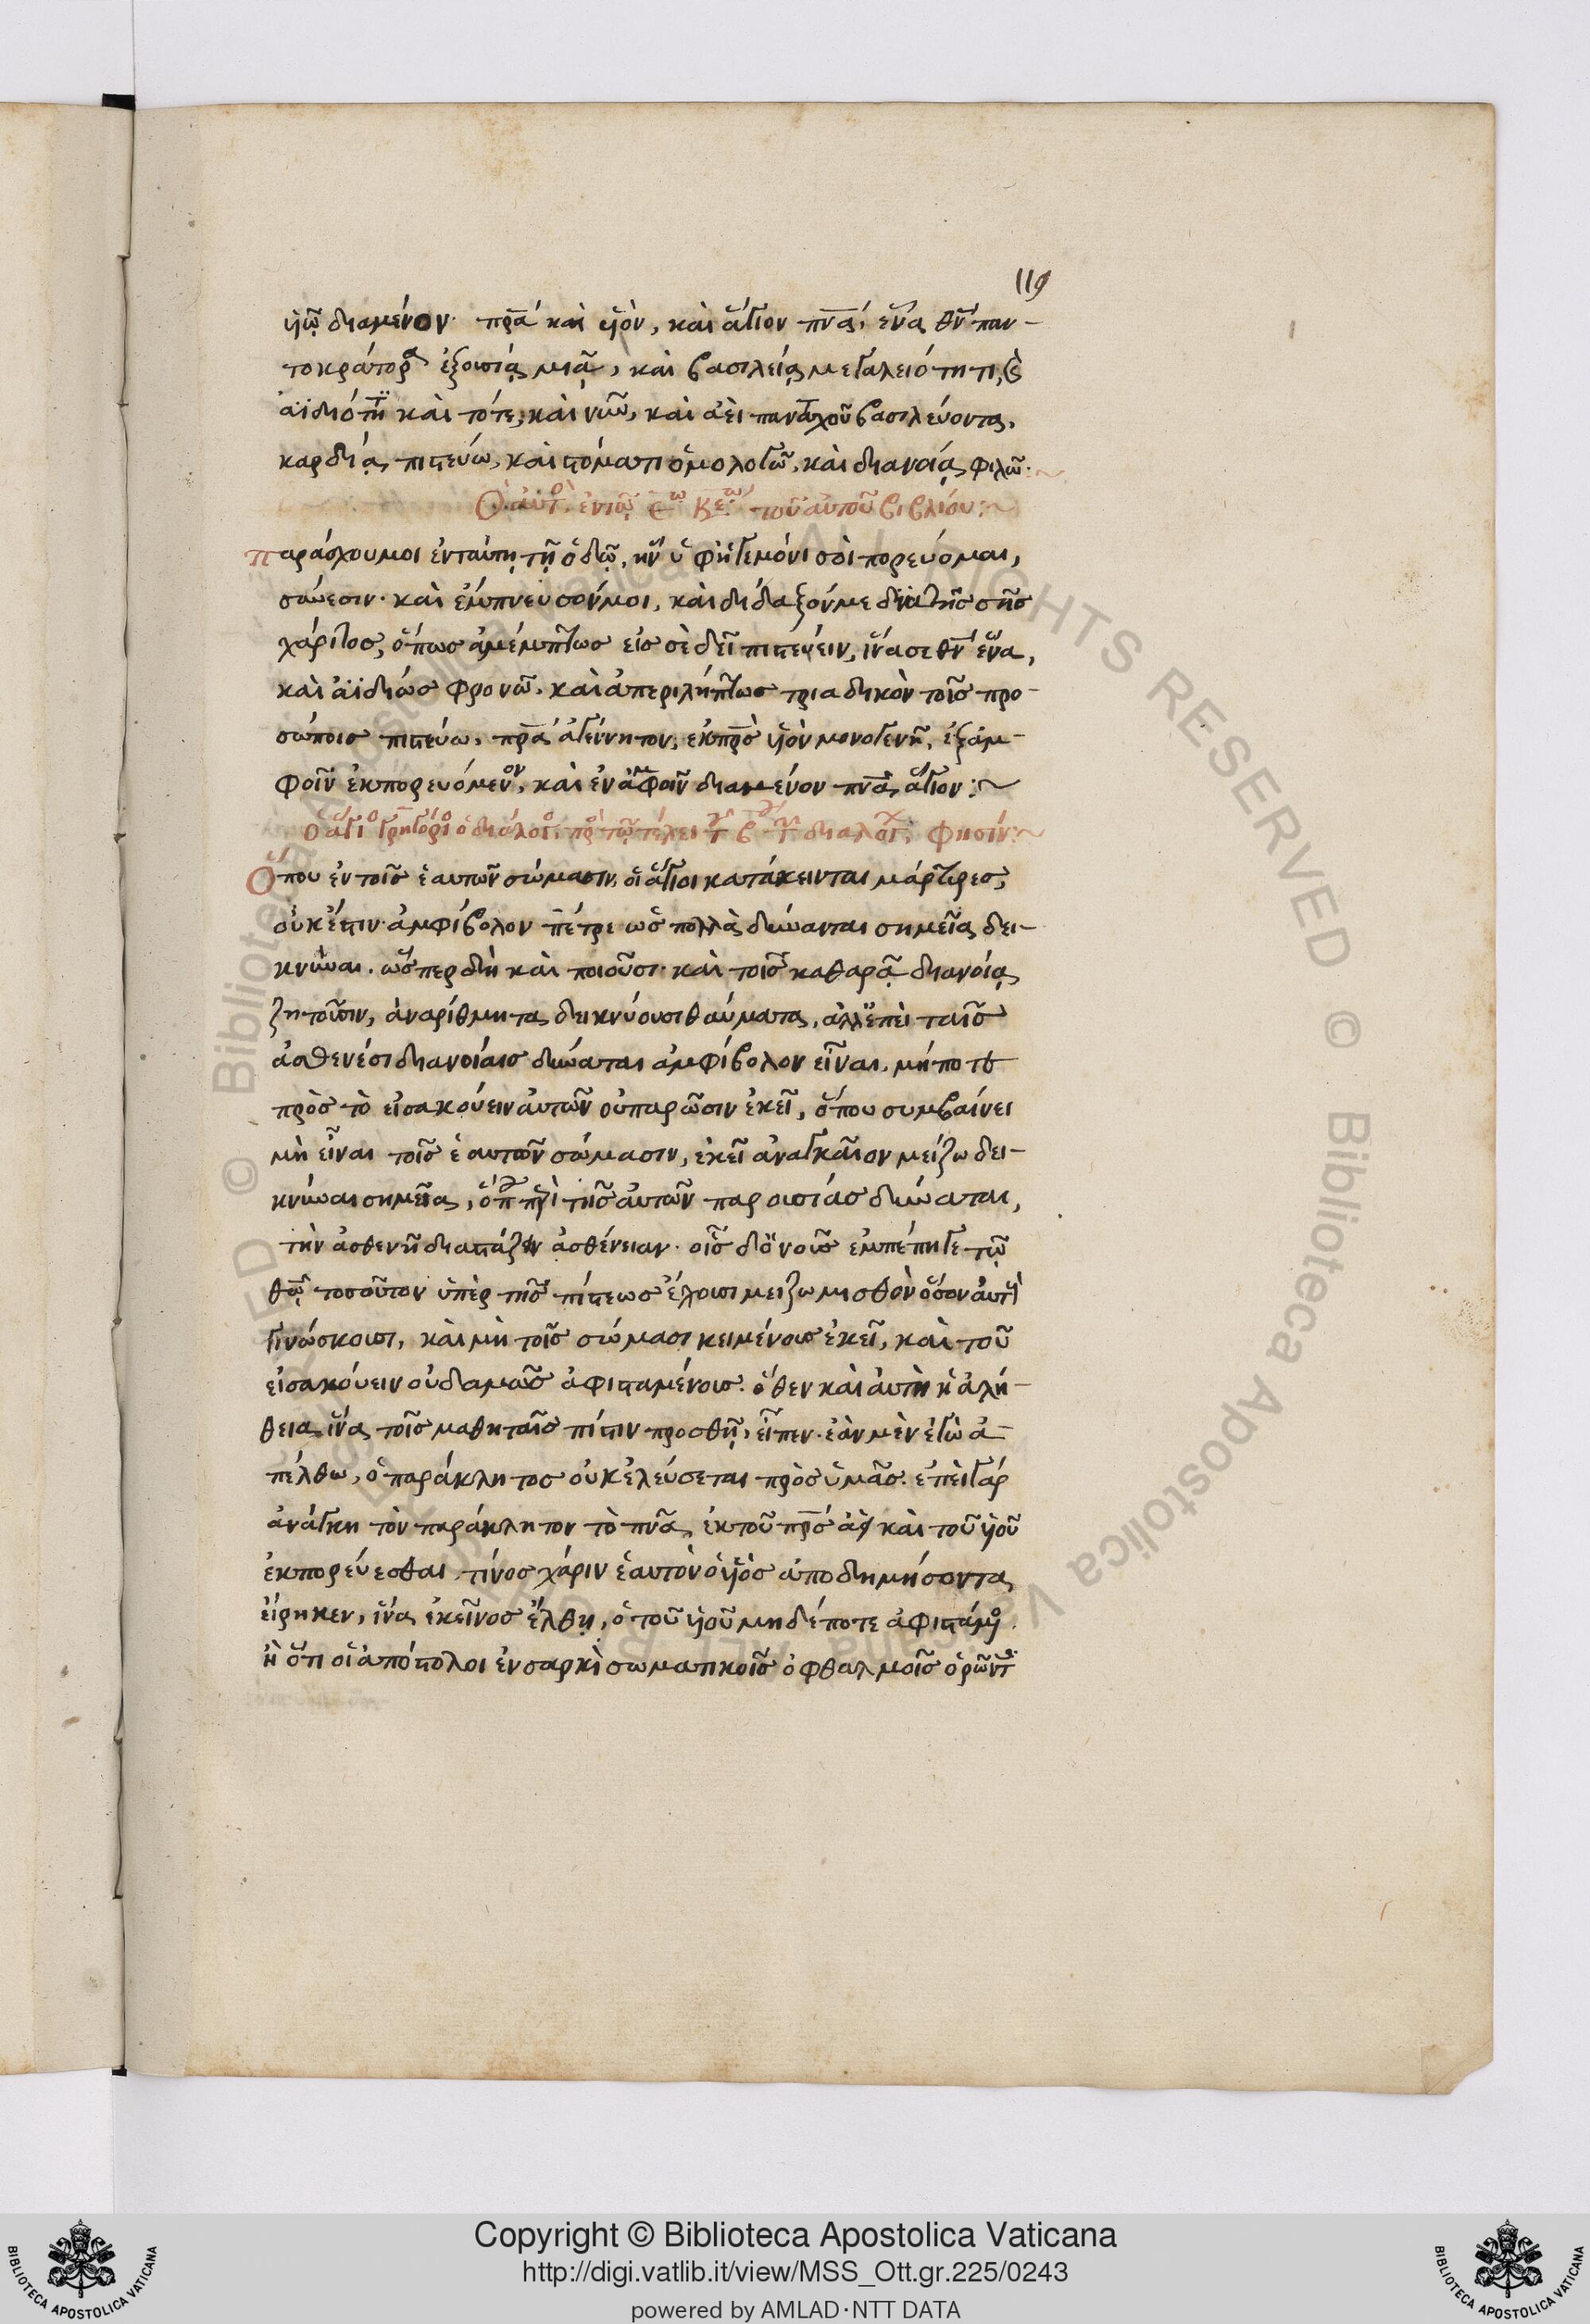 119
υἱῷ διαμένον· πρ̅α καὶ υἱὸν, καὶ ἅγιον πν̅α, ἕνα θν̅ παν-
τοκράτορα ἐξουσίᾳ μιᾷ, καὶ βασιλείᾳ μεγαλειότητι, καὶ
ἀϊδιότητι καὶ τότε, καὶ νῦν, καὶ ἀεὶ πανταχοῦ βασιλεύοντα,
καρδίᾳ πιστεύω, καὶ στόματι ὁμολογῶ, καὶ διανοίᾳ φιλῶ:~
Ὁ αὐτὸς ἐν τῷ εω κεω τοῦ αὐτοῦ βιβλίου:~
παράσχου μοι ἐν ταύτῃ τῇ ὁδῷ, ἣν ὑφ ἡγεμόνι σοὶ πορεύομαι,
σύνεσιν· καὶ ἔμπνευσόν μοι, καὶ δίδαξόν με διὰ τῆς σῆς
χάριτος, ὅπως ἀμέμπτως εἰς σὲ δεῖ πιστεύειν, ἵνα σε θν̅ ἕνα,
καὶ ἀϊδίως φρονῶ, καὶ ἀπεριλήπτως τριαδικὸν τοῖς προ-
σώποις πιστεύω, πρ̅α ἀγέννητον, ἐκ πρ̅ς υἱὸν μονογενῆ, ἐξ ἀμ-
φοῖν ἐκπορευόμενον, καὶ ἐν ἀμφοῖν διαμένον πν̅α ἅγιον:~
Ὁ ἅγιος γρηγόριος ὁ διάλογος, πρὸς τῷ τέλει τοῦ β τῶν διαλόγων, φησίν:~
Ὅπου ἐν τοῖς ἑαυτῶν σώμασιν, οἱ ἅγιοι κατάκεινται μάρτυρες,
οὐκ ἔστιν ἀμφίβολον πέτρε ὡς πολλὰ δύνανται σημεῖα δει-
κνύναι. ὥσπερ δὴ καὶ ποιοῦσι· καὶ τοῖς καθαρᾷ διανοίᾳ
ζητοῦσιν, ἀναρίθμητα δεικνύουσι θαύματα, ἀλλ ἐπεὶ ταῖς
ἀσθενέσι διανοίαις δύναται ἀμφίβολον εἶναι, μήποτε
πρὸς τὸ εἰσακούειν αὐτῶν οὐ παρῶσιν ἐκεῖ, ὅπου συμβαίνει
μὴ εἶναι τοῖς ἑαυτῶν σώμασιν, ἐκεῖ ἀναγκαῖον μείζω δει-
κνύναι σημεῖα, ὅπου περὶ τῆς αὐτῶν παρουσίας δύναται,
τὴν ἀσθενῆ διστάζειν ἀσθένειαν· οἷς δ ὁ νοῦς ἐμπέπηγε τῷ
θῷ τοσοῦτον ὑπὲρ τῆς πίστεως ἔχουσι μείζω μισθὸν ὅσον αὐτοὶ
γινώσκουσι, καὶ μὴ τοῖς σώμασι κειμένους ἐκεῖ, καὶ τοῦ
εἰσακούειν οὐδαμῶς ἀφισταμένους. ὅθεν καὶ αὐτὴ ἡ ἀλή-
θεια, ἵνα τοῖς μαθηταῖς πίστιν προσθῇ, εἶπεν· ἐὰν μὲν ἐγὼ ἀ-
πέλθω, ὁ παράκλητος οὐκ ἐλεύσεται πρὸς ὑμᾶς. ἐπεὶ γάρ
ἀνάγκη τὸν παράκλητον τὸ πν̅α, ἐκ τοῦ πρ̅ς ἀεὶ καὶ τοῦ υἱοῦ
ἐκπορεύεσθαι, τίνος χάριν ἑαυτὸν ὁ υἱὸς ἀποδημήσοντα
εἴρηκεν, ἵνα ἐκεῖνος ἔλθῃ, ὁ τοῦ υἱοῦ μηδέποτε ἀφιστάμενος.
ἢ ὅτι οἱ ἀπόστολοι ἐν σαρκὶ σωματικοῖς ὀφθαλμοῖς ὁρῶντες
Copyright © Biblioteca Apostolica Vaticana
http://digi.vatlib.it/view/MSS_Ott.gr.225/0243
powered by AMLAD·NTT DATA